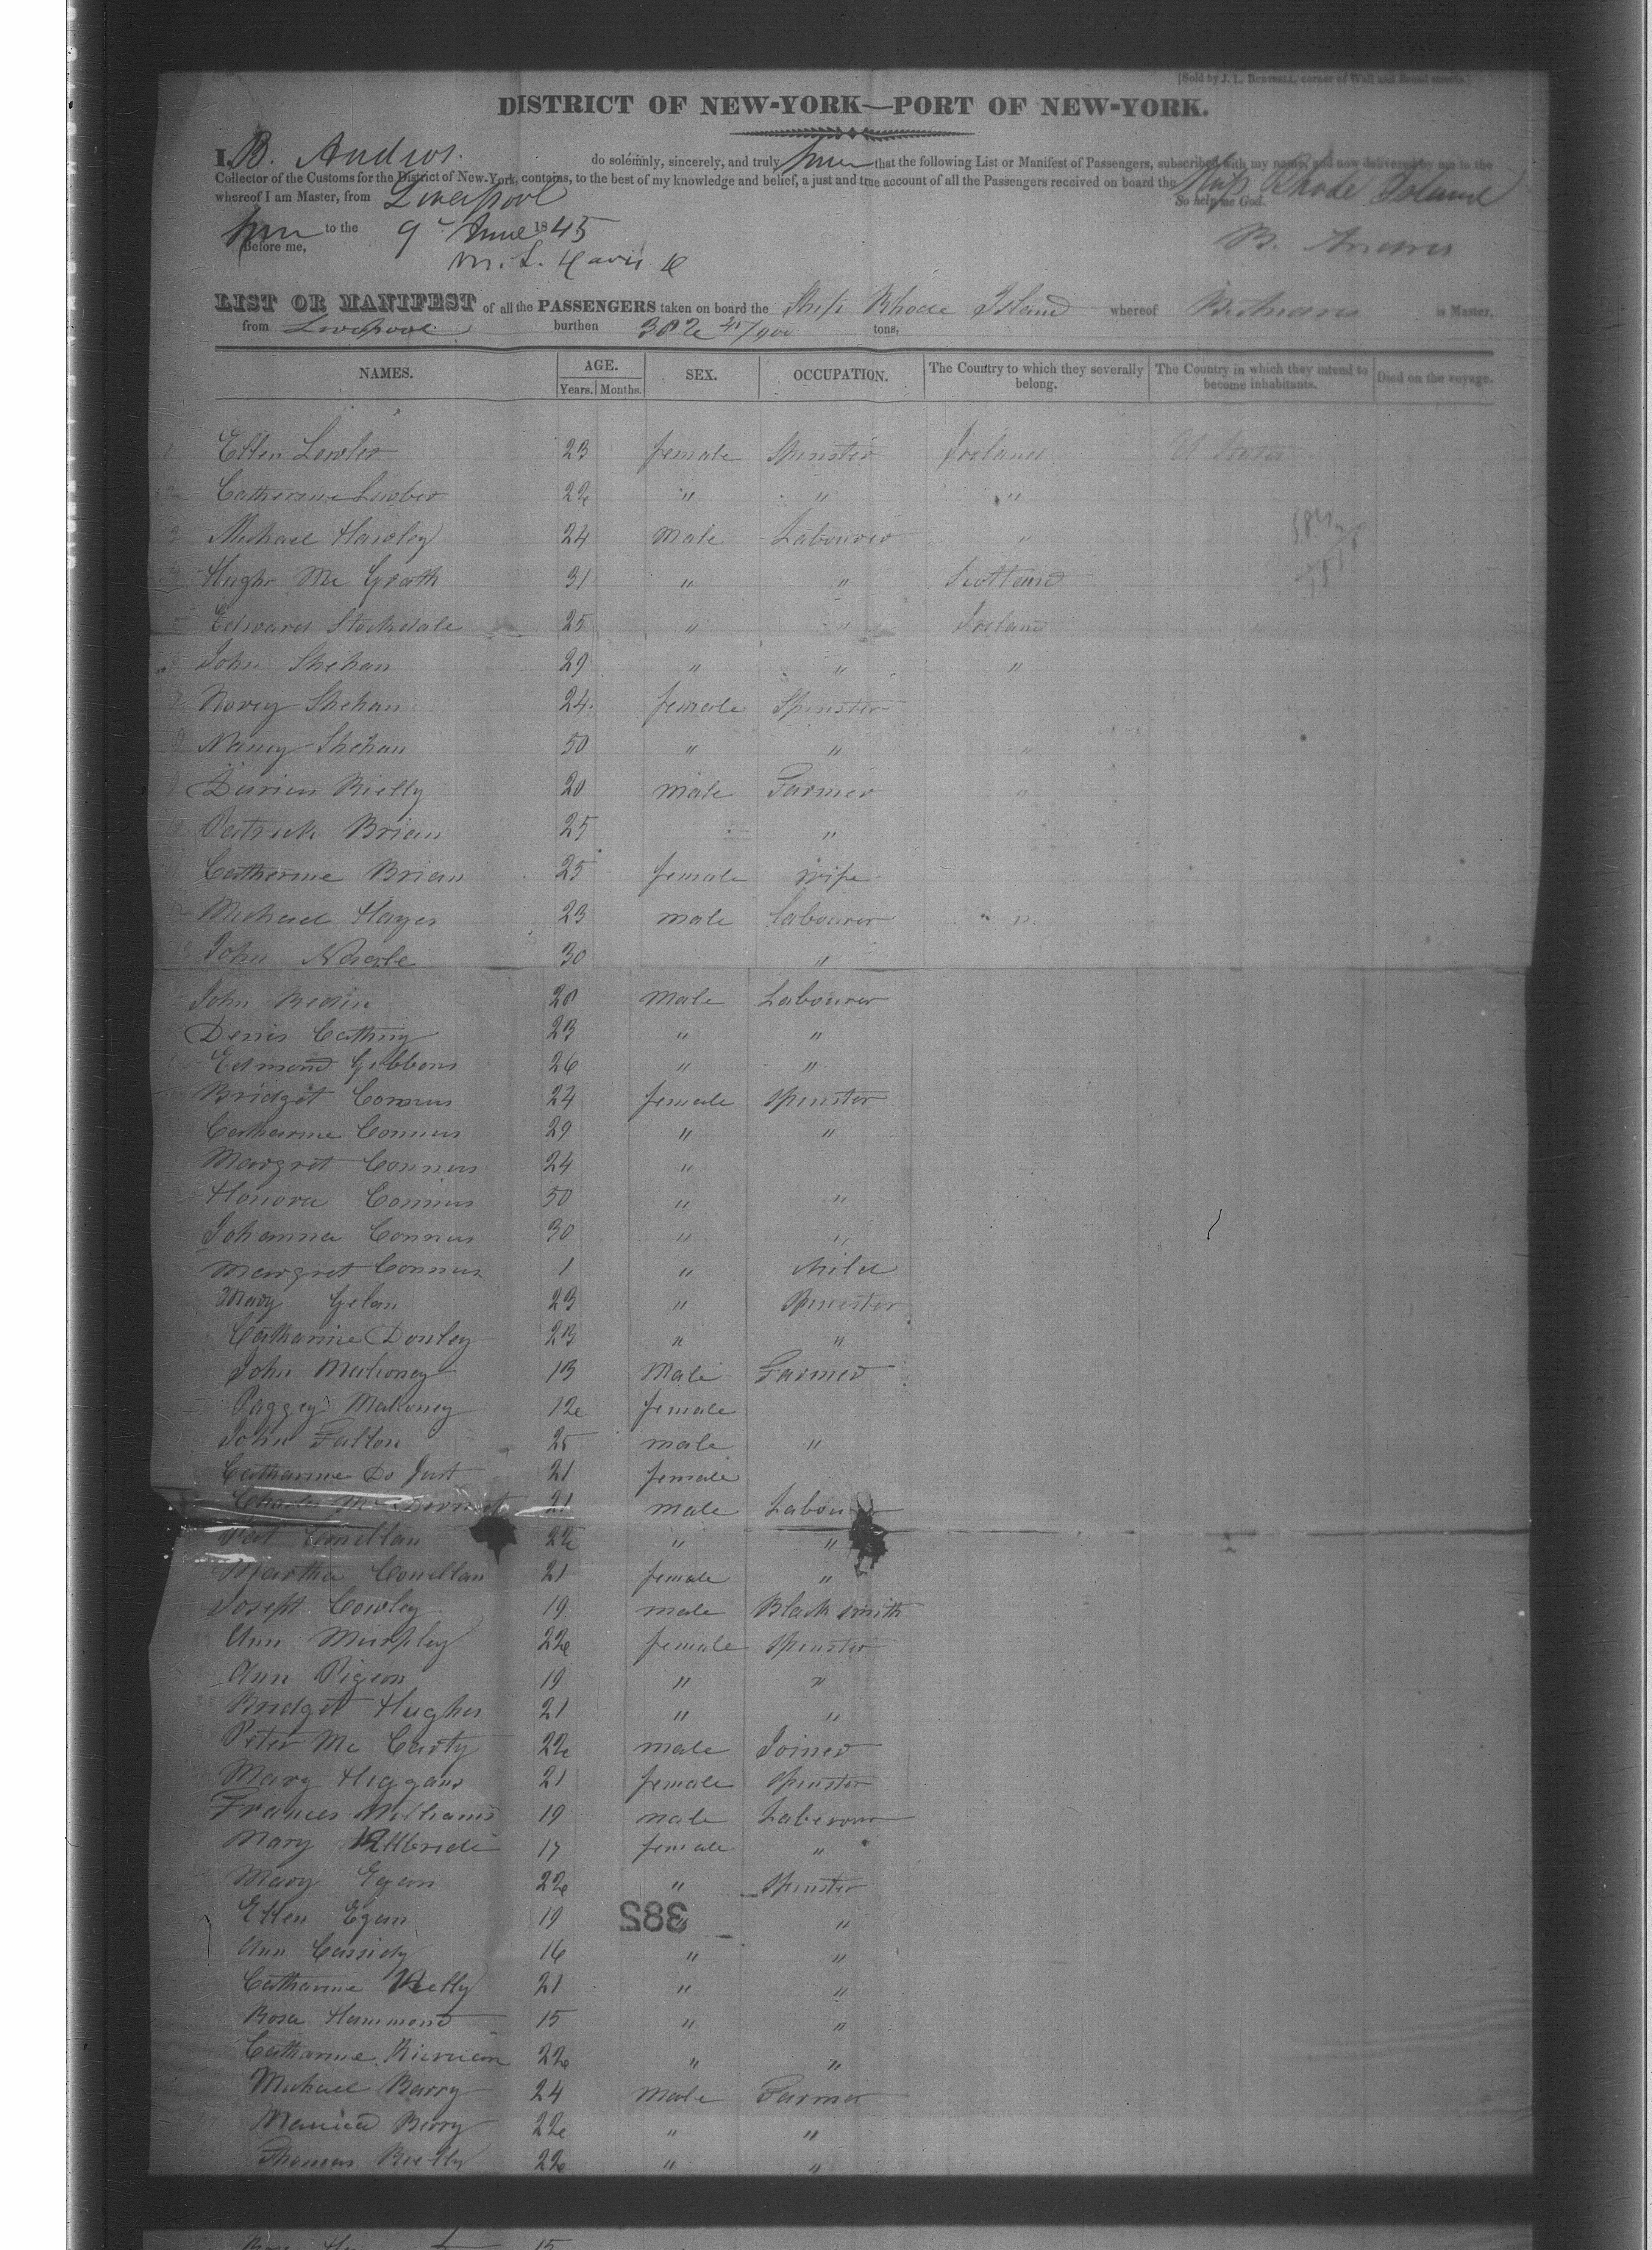 [Sold by J. L. BURTSELL, corner of Wall and Broad streets.]
DISTRICT OF NEW-YORK—PORT OF NEW-YORK.
I, B. Andros do solemnly, sincerely, and truly that the following List or Manifest of Passengers, subscribed with my name, and now delivered by me to the
Collector of the Customs for the District of New-York, contains, to the best of my knowledge and belief, a just and true account of all the Passengers received on board the Ship Rhode Island
whereof I am Master, from Liverpool So help me God.
to the 9 June 1845 B. Andros
Before me,
LIST OR MANIFEST of all the PASSENGERS taken on board the Ship Rhode Island whereof B. Andros is Master,
from Liverpool burthen tons,
NAMES. AGE. SEX. OCCUPATION. The Country to which they severally belong. The Country in which they intend to become inhabitants. Died on the voyage.
Years. Months.
Ellen Lawler 23 female Spinster Ireland U States
Catherine 22 " " "
Michael Hawley 24 Male Labourer "
Hugh Mc Grath 31 " " Scotland
Edward Stockdale 25 " " Ireland "
John Shehan 29 " " "
Shehan 24 female Spinster
Nancy Shehan 50 " " "
20 male Farmer "
Patrick Brian 25 "
Catherine Brian 25 female Wife
Michael Hayes 23 male Labourer "
John 30 "
John 28 Male Labourer
Denis 23 " "
Edmond Gibbons 26 " "
Bridget Connus 24 female Spinster
Catharine Connus 29 " "
Margret Connus 24 "
Honora Connus 50 " "
Johanna Connus 30 " "
Margret Connus 1 " Child
Mary Gelan 23 " Spinster
Catharine Donley 23 " "
John Mahoney 13 Male Farmer
Paggey Mahoney 12 female
John Fallon 25 male "
Catharine 21 female
Charles Mc Dermot 21 male Labourer
Pat Conellan 22 " "
Martha Conellan 21 female "
Joseph Cowley 19 male Black smith
Ann Murphey 22 female Spinster
Ann Pigeon 19 " "
Bridget Hughes 21 " "
Peter Mc Carty 22 male Joiner
Mary Higgans 21 female Spinster
Frances Williams 19 male Labourer
Mary Killbride 17 female "
Mary Egan 22 " Spinster
Ellen Egan 19 " "
382
Ann Cassidy 16 " "
Catharine Kelly 21 " "
Rosa Hammond 15 " "
Catharine 22 " "
Michael Barry 24 Male Farmer
Berry 22 " "
Thomas 22 " "